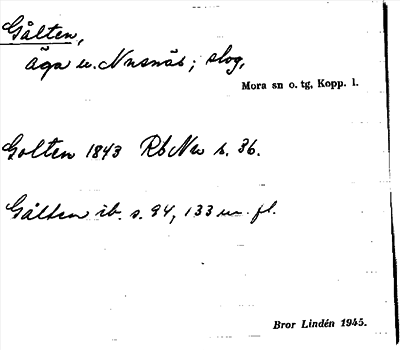 Gålten,
äga u. Nusnäs; slog,
Mora sn o. tg, Kopp. l.
Golten 1843 Rb Nu s. 36.
Gålten ib. s. 94, 133 m. fl.
Bror Lindén 1945.